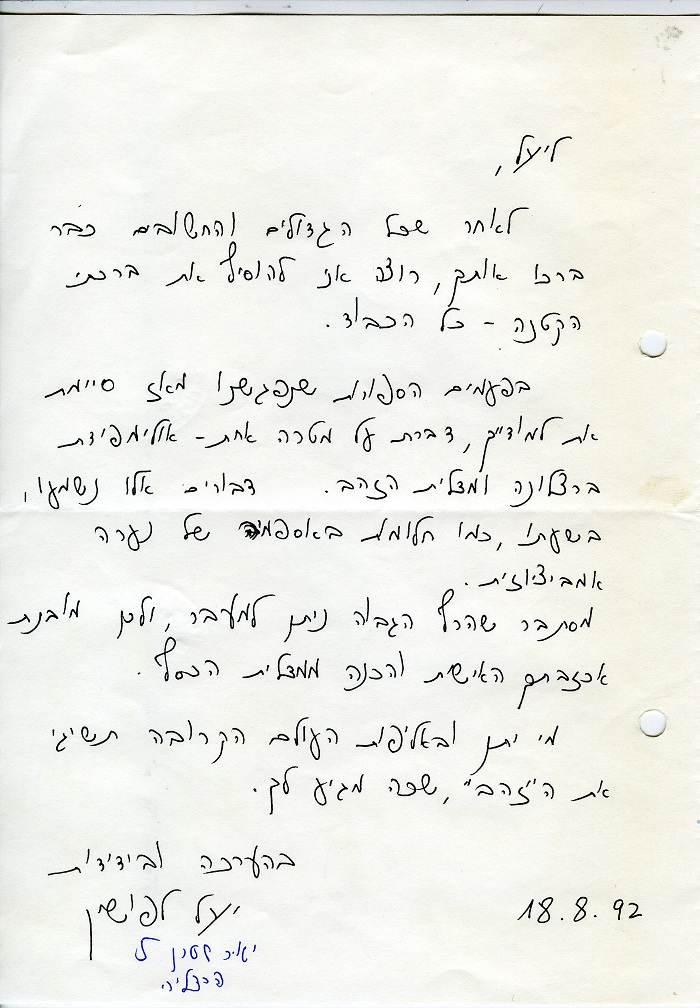 ליעל,
לאחר שכל הגדולים והחשובים כבר
ברכו אותך, רוצה אני להוסיף את ברכתי
הקטנה - כל הכבוד.
בפעמים הספורות שנפגשנו מאז סיימת
את למודייך, דברת על מטרה אחת - אולימפידת
ברצלונה ומדלית הזהב. דבורים אלו נשמעו,
בשעתו, כמו חלומות באספמיה של נערה
אמביציוזית.
מסתבר שהרף הגבוה ניתן למעבר, ולכן מובנת
אכזבתך האישית והכנה ממדלית הכסף.
מי יתן ובאליפות העולם הקרובה תשיגי
את ה"זהב", שכה מגיע לך.
בהערכה ובידידות
יעל לפושין
18.8.92
יאיר שטרן
הרצליה